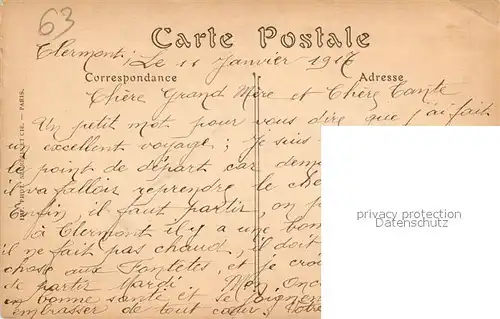 63
Carte Postale
Clermont. Le 11 Janvier 1917
Correspondance
Adresse
Chère Grand Mère et Chère Tante
Un petit mot pour vous dire que j'ai fait
un excellent voyage ; Je suis
le point de départ car dem
il va falloir reprendre le che
Enfin il faut partir, on p
à Clermont il y a une bon
il ne fait pas chaud, il doit
chose aux Fontetes, et je croi
de partir Mardi. Mon onc
en bonne santé et se joignen
embrasser de tout cœur. Votre
PARIS.
privacy protection
watermark